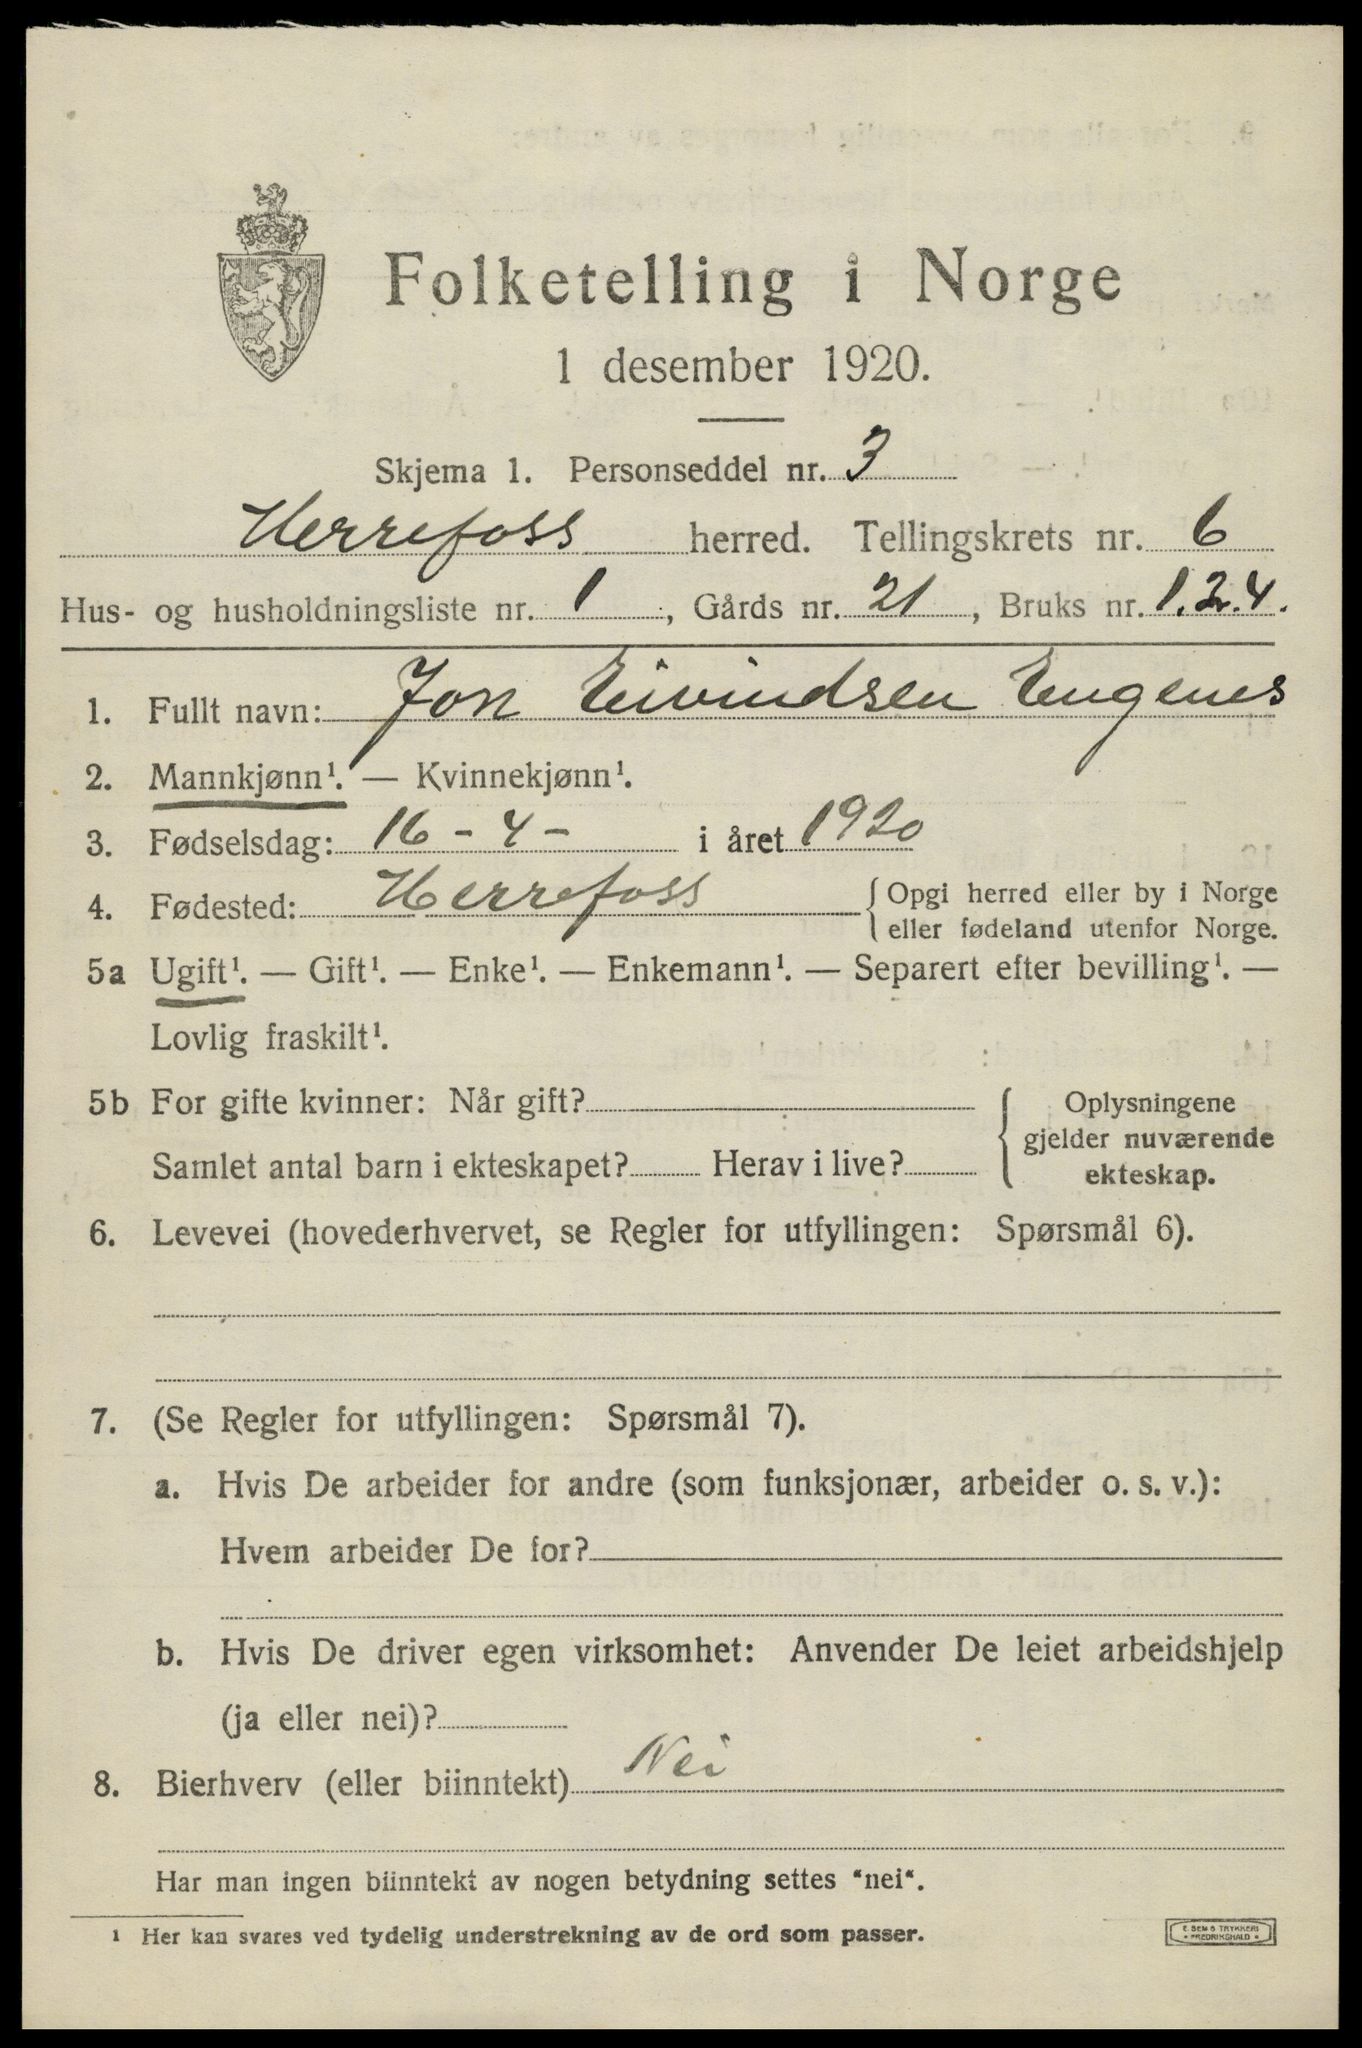 Folketelling i Norge
1 desember 1920.
Skjema 1. Personseddel nr. 3
Herrefoss herred. Tellingskrets nr. 6
Hus- og husholdningsliste nr. 1, Gårds nr. 21, Bruks nr. 1.2.4.
1. Fullt navn: Jon Eivindsen Engenes
2. Mannkjønn¹. — Kvinnekjønn¹.
3. Fødselsdag: 16 - 4 - i året 1920
4. Fødested: Herrefoss { Opgi herred eller by i Norge
eller fødeland utenfor Norge.
5a Ugift¹. — Gift¹. — Enke¹. — Enkemann¹. — Separert efter bevilling¹. —
Lovlig fraskilt¹.
5b For gifte kvinner: Når gift? { Oplysningene
gjelder nuværende
Samlet antal barn i ekteskapet? Herav i live?
ekteskap.
6. Levevei (hovederhvervet, se Regler for utfyllingen: Spørsmål 6).
7. (Se Regler for utfyllingen: Spørsmål 7).
a. Hvis De arbeider for andre (som funksjonær, arbeider o. s. v.):
Hvem arbeider De for?
b. Hvis De driver egen virksomhet: Anvender De leiet arbeidshjelp
(ja eller nei)?
8. Bierhverv (eller biinntekt) Nei
Har man ingen biinntekt av nogen betydning settes "nei".
¹ Her kan svares ved tydelig understrekning av de ord som passer.
E. SEMS TRYKKERI
FREDRIKSHALD